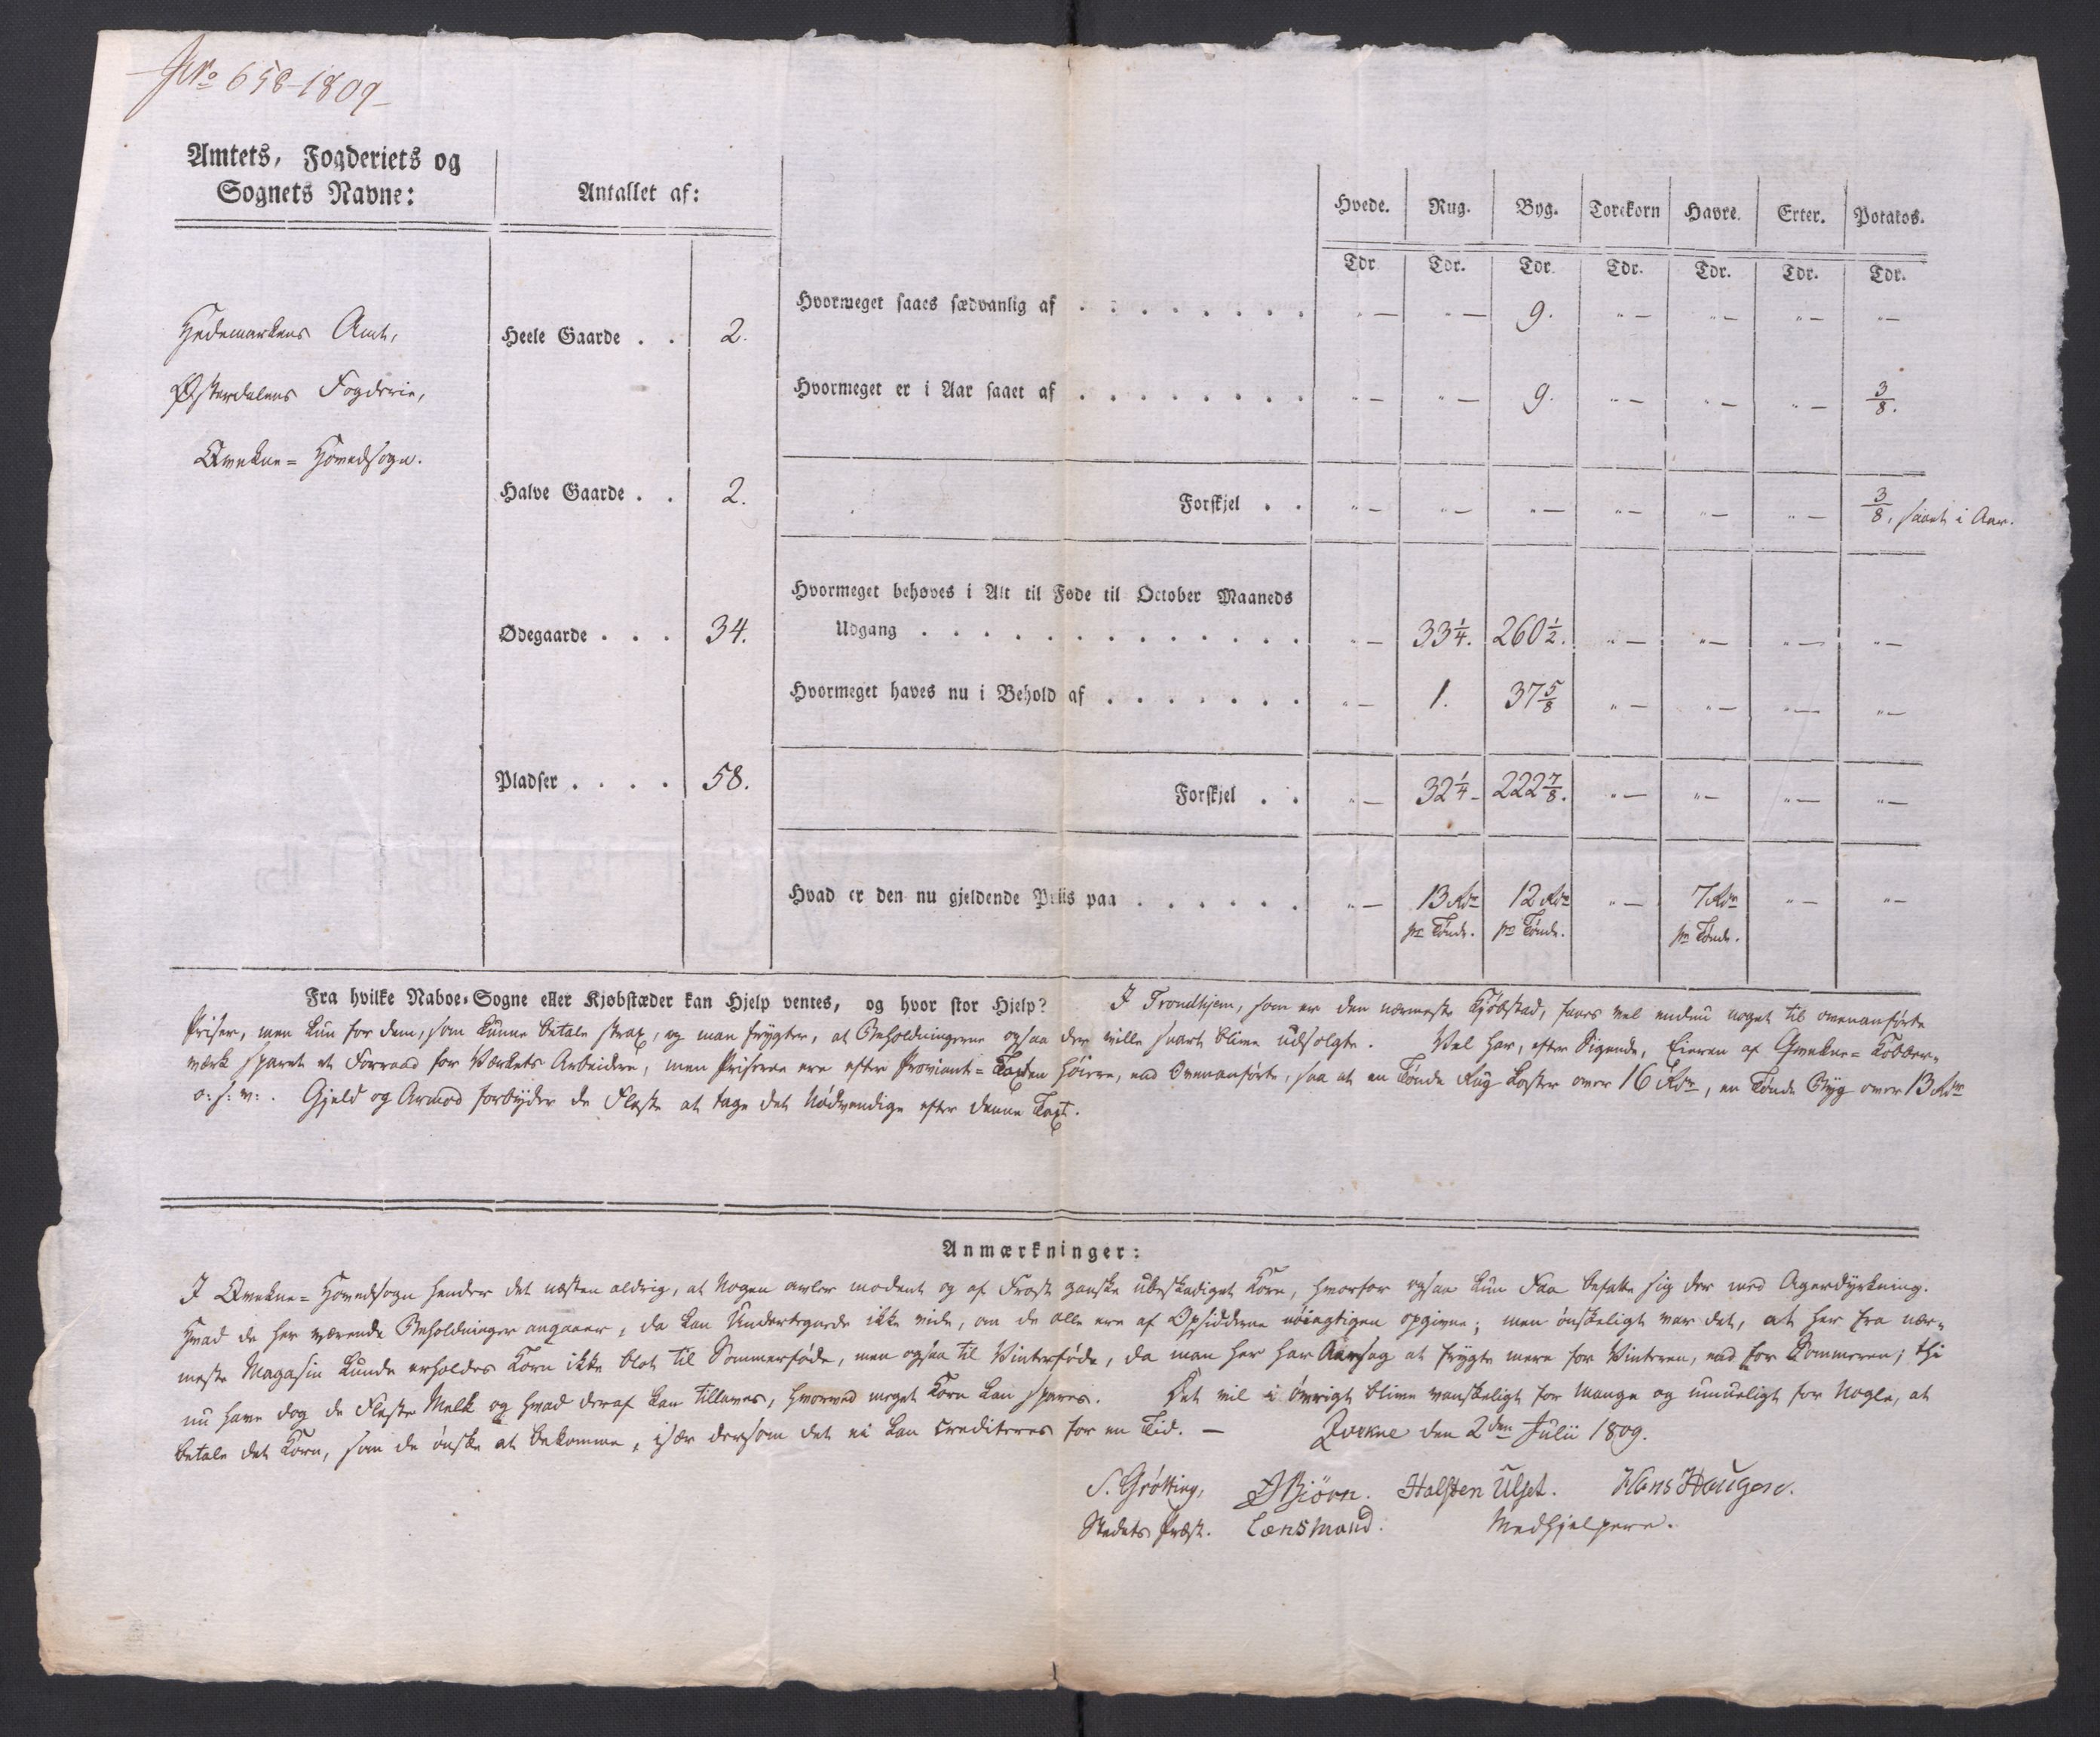 Jrn: 658-1809
Amtets, Fogderiets og
Sognets Navne:
Antallet af:
Hvede. Rug. Byg. Torekorn Havre. Erter. Potatos.
Tdr. Tdr. Tdr. Tdr. Tdr. Tdr. Tdr.
Hedemarkens Amt,
Østerdalens Fogderie,
Qvekne= Hovedsogn.
Heele Gaarde . . 2.
Halve Gaarde . . 2.
Ødegaarde . . . 34.
Pladser . . . . 58.
Hvormeget saaes sædvanlig af . . . . . . . . "— "— 9. "— "— "— "—
Hvormeget er i Aar saaet af . . . . . . . . "— "— 9. "— "— "— 3/8.
Forskjel . . "— "— "— "— "— "— 3/8, saaet i Aar.
Hvormeget behøves i Alt til Føde til October Maaneds
Udgang . . . . . . . . . . . . . "— 33 1/4. 260 1/2. "— "— "— "—
Hvormeget haves nu i Behold af . . . . . . . "— 1. 37 5/8 "— "— "— "—
Forskjel . . "— 32 1/4- 222 7/8. "— "— "— "—
Hvad er den nu gjeldende Priis paa . . . . . . "— 13 Rdr 12 Rdr "— 7 Rdr "— "—
pr Tønde. pr Tønde. pr Tønde.
Fra hvilke Naboe-Sogne eller Kjøbstæder kan Hjelp ventes, og hvor stor Hjelp? I Trondhjem, som er den nærmeste Kjøbstad, faaes vel endnu noget til ovenanførte
Priser, men kun for dem, som kunne betale strax, og man frygter, at Beholdningerne ogsaa der ville snart blive udsolgte. Vel har, efter Sigende, Eieren af Qvekne= Kobber-
værk sparet et Forraad for Værkets Arbeidere, men Priserne ere efter Proviant= Taxten høiere, end Ovenanførte, saa at en Tønde Rug koster over 16 Rdr, en Tønde Byg over 13 Rdr
o: s: v: . Gjeld og Armod forbyder de Fleste at tage det Nødvendige efter denne Taxt.
Anmærkninger:
I Qvekne= Hovedsogn hender det næsten aldrig, at Nogen avler modent og af Frost ganske ubeskadiget Korn, hvorfor ogsaa kun Faa befatte sig der med Agerdyrkning.
Hvad de her værende Beholdninger angaaer, da kan Undertegnede ikke vide, om de alle ere af Opsidderne nøiagtigen opgivne; men ønskeligt var det, at her fra nær-
meste Magasin kunde erholdes Korn ikke blot til Sommerføde, men ogsaa til Vinterføde, da man her har Aarsag at frygte mere for Vinteren, end for Sommeren; thi
nu have dog de Fleste Melk og hvad deraf kan tillaves, hvorved meget Korn kan spares. Det vil i øvrigt blive vanskeligt for Mange og umueligt for Nogle, at
betale det Korn, som de ønske at bekomme, især dersom det ei kan crediteres for en Tid. —
Qvekne den 2den Julii 1809.
S. Grøtting, Bjørn. Halsten Ulset. Hans Hougen.
Stedets Præst. Lænsmand. Medhjelpere.